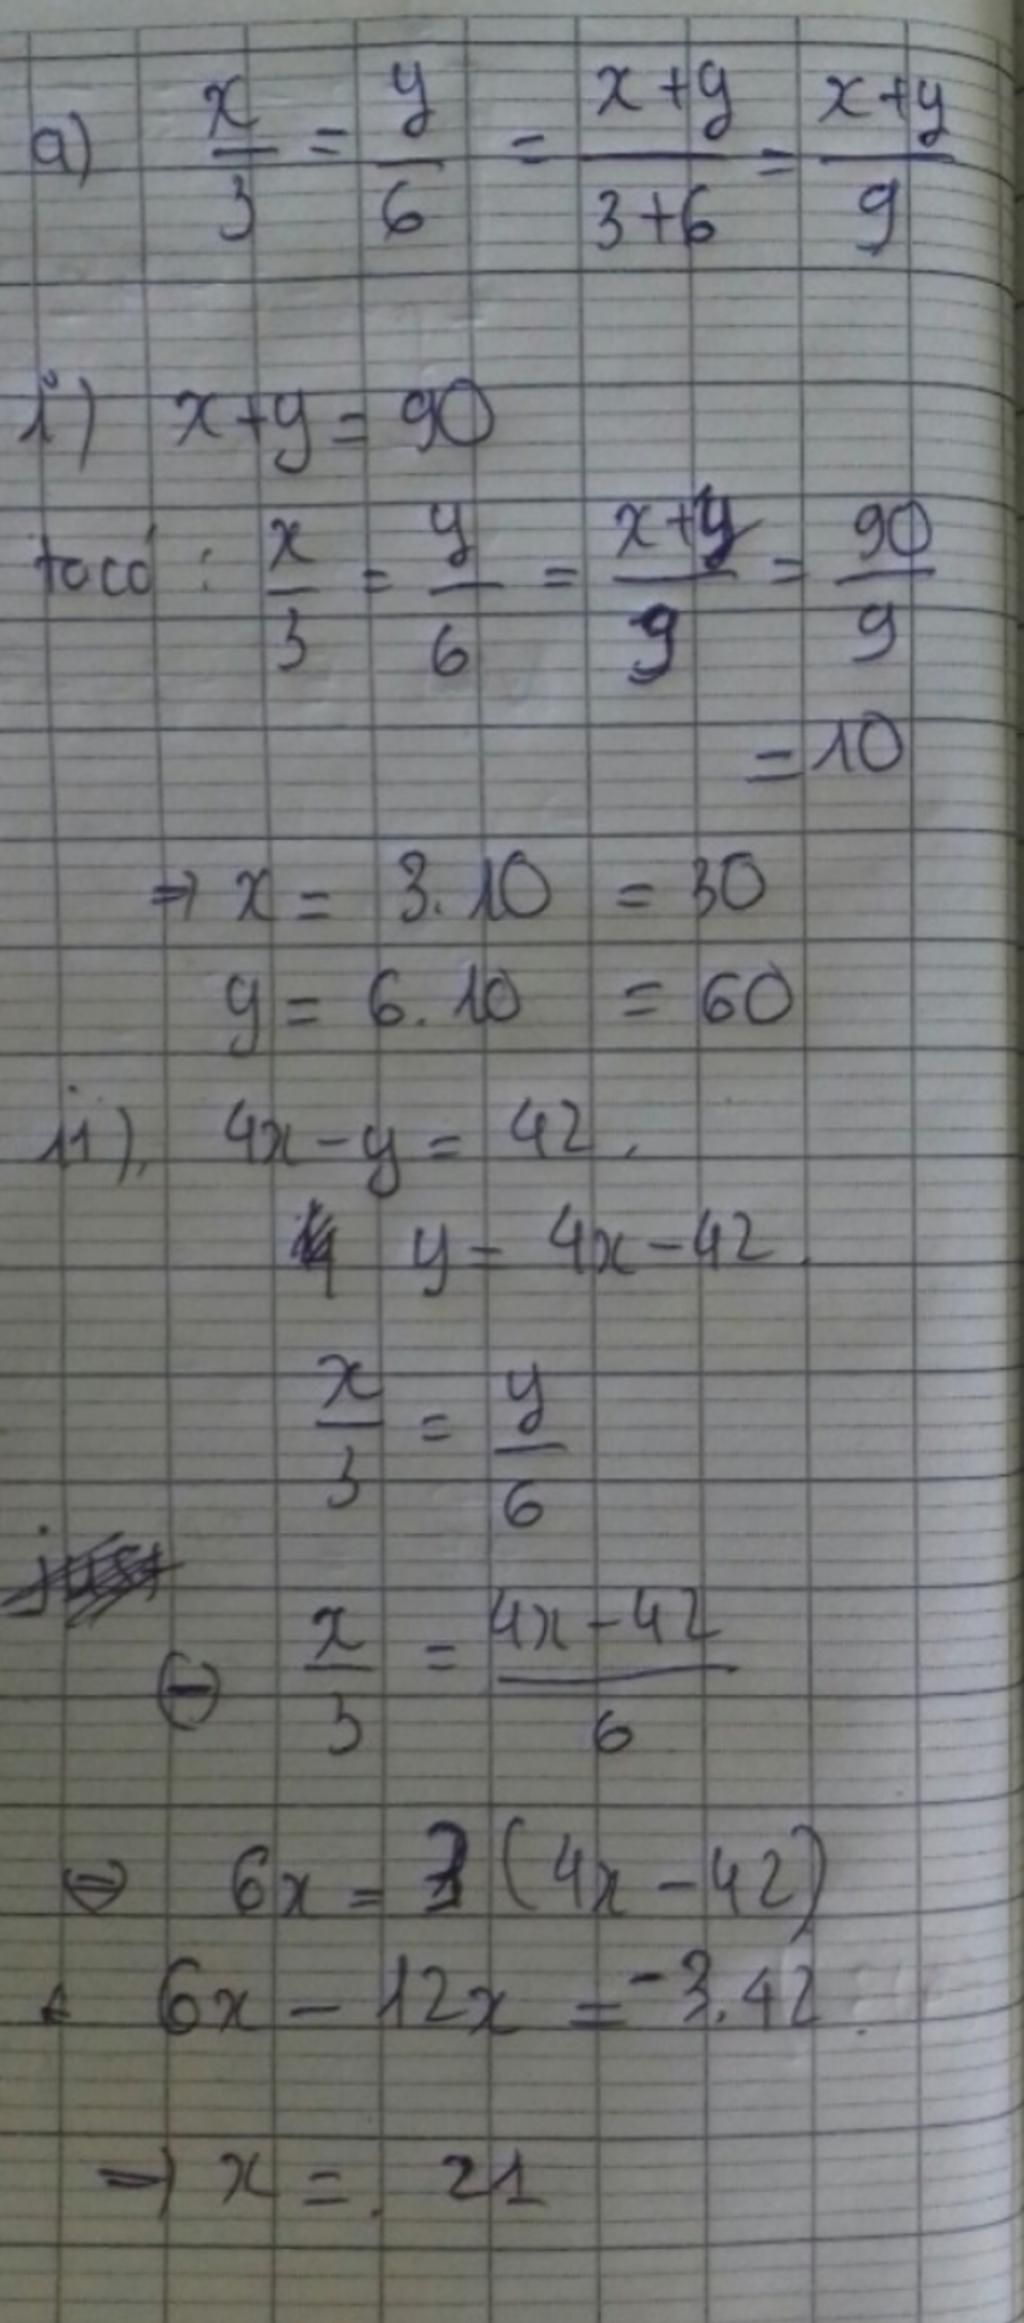 a) x/3 = y/6 = x+y/3+6 = x+y/9
i) x+y = 90
ta có : x/3 = y/6 = x+y/9 = 90/9
= 10
⇒ x = 3.10 = 30
y = 6.10 = 60
ii). 4x-y = 42.
y = 4x-42.
x/3 = y/6
⇔ x/3 = 4x-42/6
⇔ 6x = 3(4x-42)
6x - 12x = -3.42
⇒ x = 21